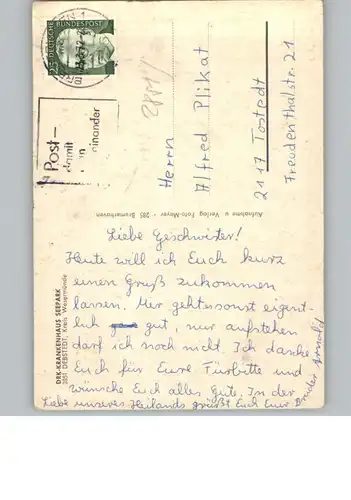 DEUTSCHE BUNDESPOST
25
Post-
damit
einander
Herrn
Alfred Plikat
2117 Tostedt
Freudenthalstr. 21
Aufnahme u. Verlag Foto-Meyer • 285 Bremerhaven
DRK-KRANKENHAUS SEEPARK
2851 DEBSTEDT, Kreis Wesermünde
Liebe Geschwister!
Heute will ich Euch kurz
einen Gruß zukommen
lassen. Mir geht es sonst eigent-
lich gut, nur aufstehen
darf ich noch nicht. Ich danke
Euch für Eure Fürbitte und
wünsche Euch alles Gute. In der
Liebe unseres Heilands grüßt Euch Euer Bruder Arnold